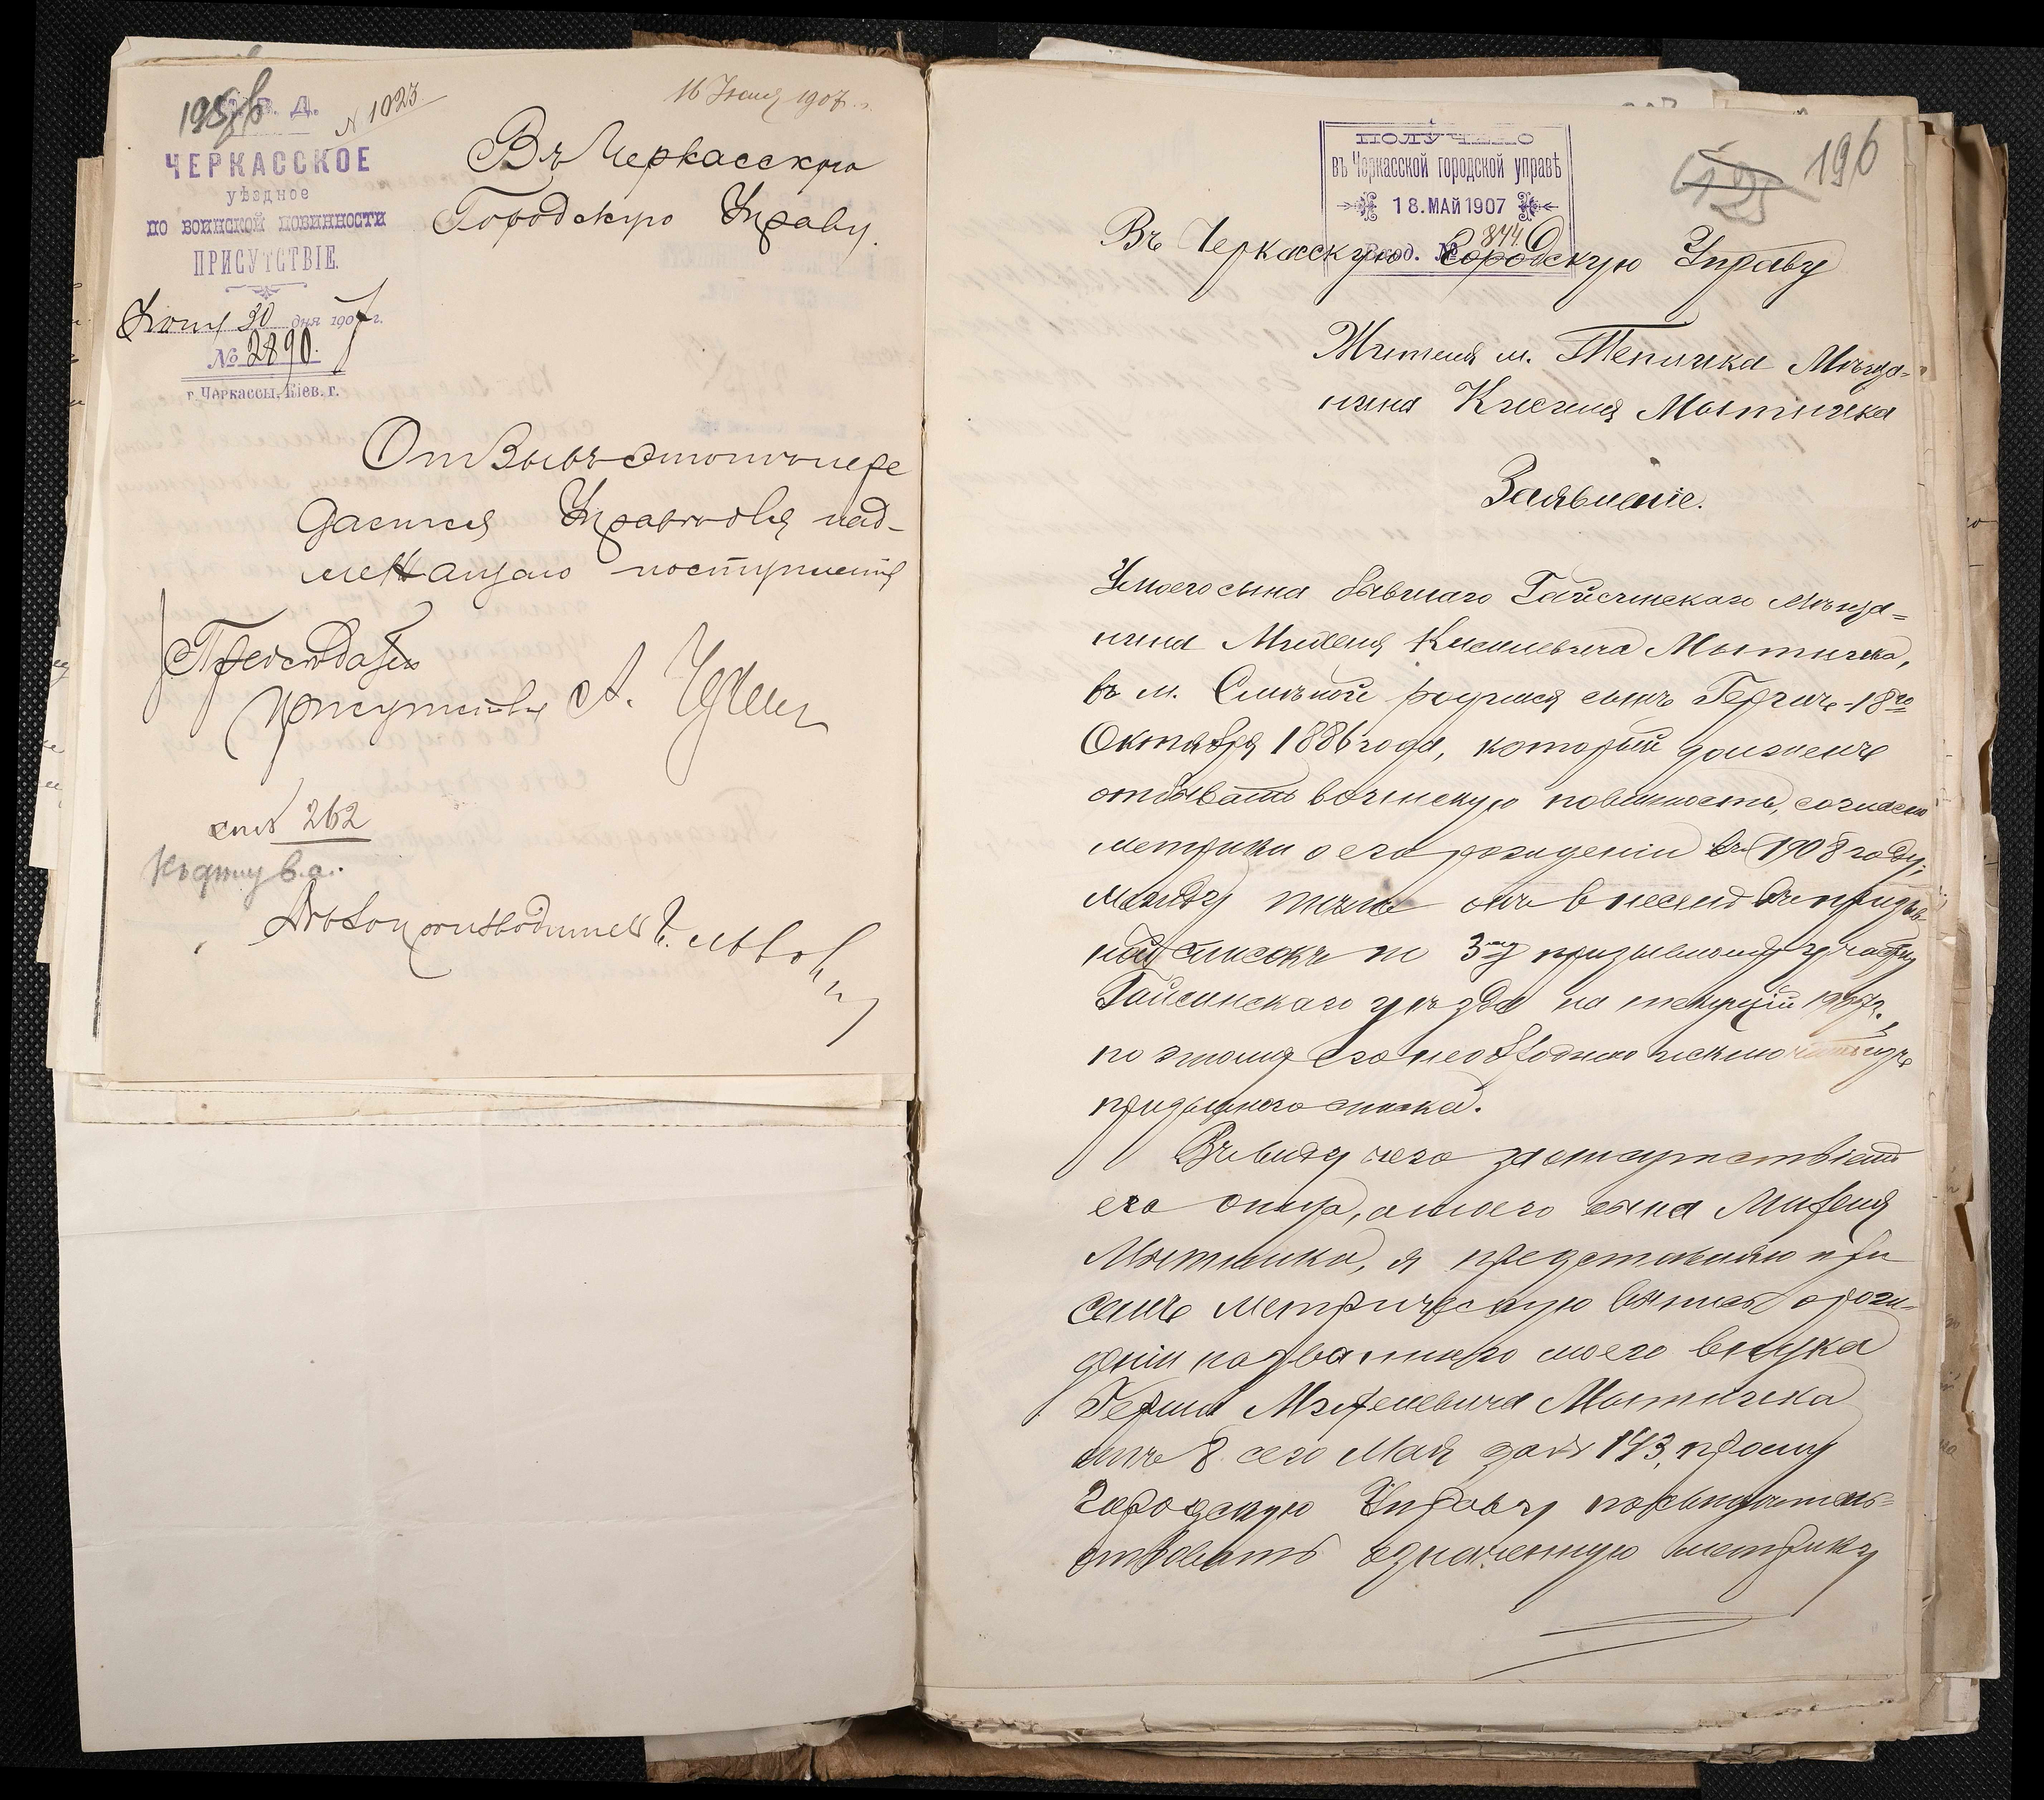 195б
М. В. Д.
N 1023
16 Іюня 1907 г.
ЧЕРКАССКОЕ
уѣздное
ПО ВОИНСКОЙ ПОВИННОСТИ
ПРИСУТСТВІЕ.
30 дня 1907 г.
№ 2890.
г. Черкассы, Кіев. г.
Въ Черкасскую
Городскую Управу.
Отзывъ этотъ пере
дается Управѣ для над-
лежащаго поступленія
Предсѣдатель
Присутствія А.
262
Дѣлопроизводитель
ПОЛУЧЕНО
въ Черкасской городской управѣ
18. МАЙ 1907
Вход. № 844
195 196
Въ Черкасскую Городскую Управу
Жителя м. Теплика Мѣща-
нина Киселя Мытника
Заявленіе.
У моего сына бывшаго Гайсинскаго Мѣща-
нина Михеля Киселевича Мытника,
въ м. Смѣлой родился сынъ Гершъ - 18го
Октября 1886 года, который долженъ
отбывать воинскую повинность, согласно
метрики о его рожденіи въ 1908 году,
между тѣмъ онъ внесенъ въ призыв-
ной списокъ по 3му призывному участку
Гайсинскаго уѣзда на текущій 1907 г.,
по этому его необходимо исключить изъ
призывного списка.
Въ виду чего за отсутствіемъ
его отца, а моего сына Михеля
Мытника, я представляю при
семъ метрическую выпись о рож-
деніи названнаго моего внука
Герша Михелевича Мытника
отъ 8 сего Мая за № 143, прошу
Городскую Управу посвидѣтель-
ствовать означенную метрику